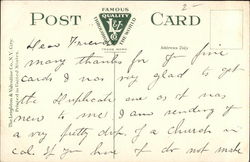 FAMOUS
POST QUALITY CARD
THROUGHOUT THE WORLD
TRADE MARK
The Leighton & Valentine Co., N.Y. City.
Printed in United States.
Address Only
2-
Dear Friend
many thanks for yr fine
cards I was very glad to get
the Duplicate one as it was
new to me I am sending you
a very pretty one of a church in
Cal. If you have it do not make